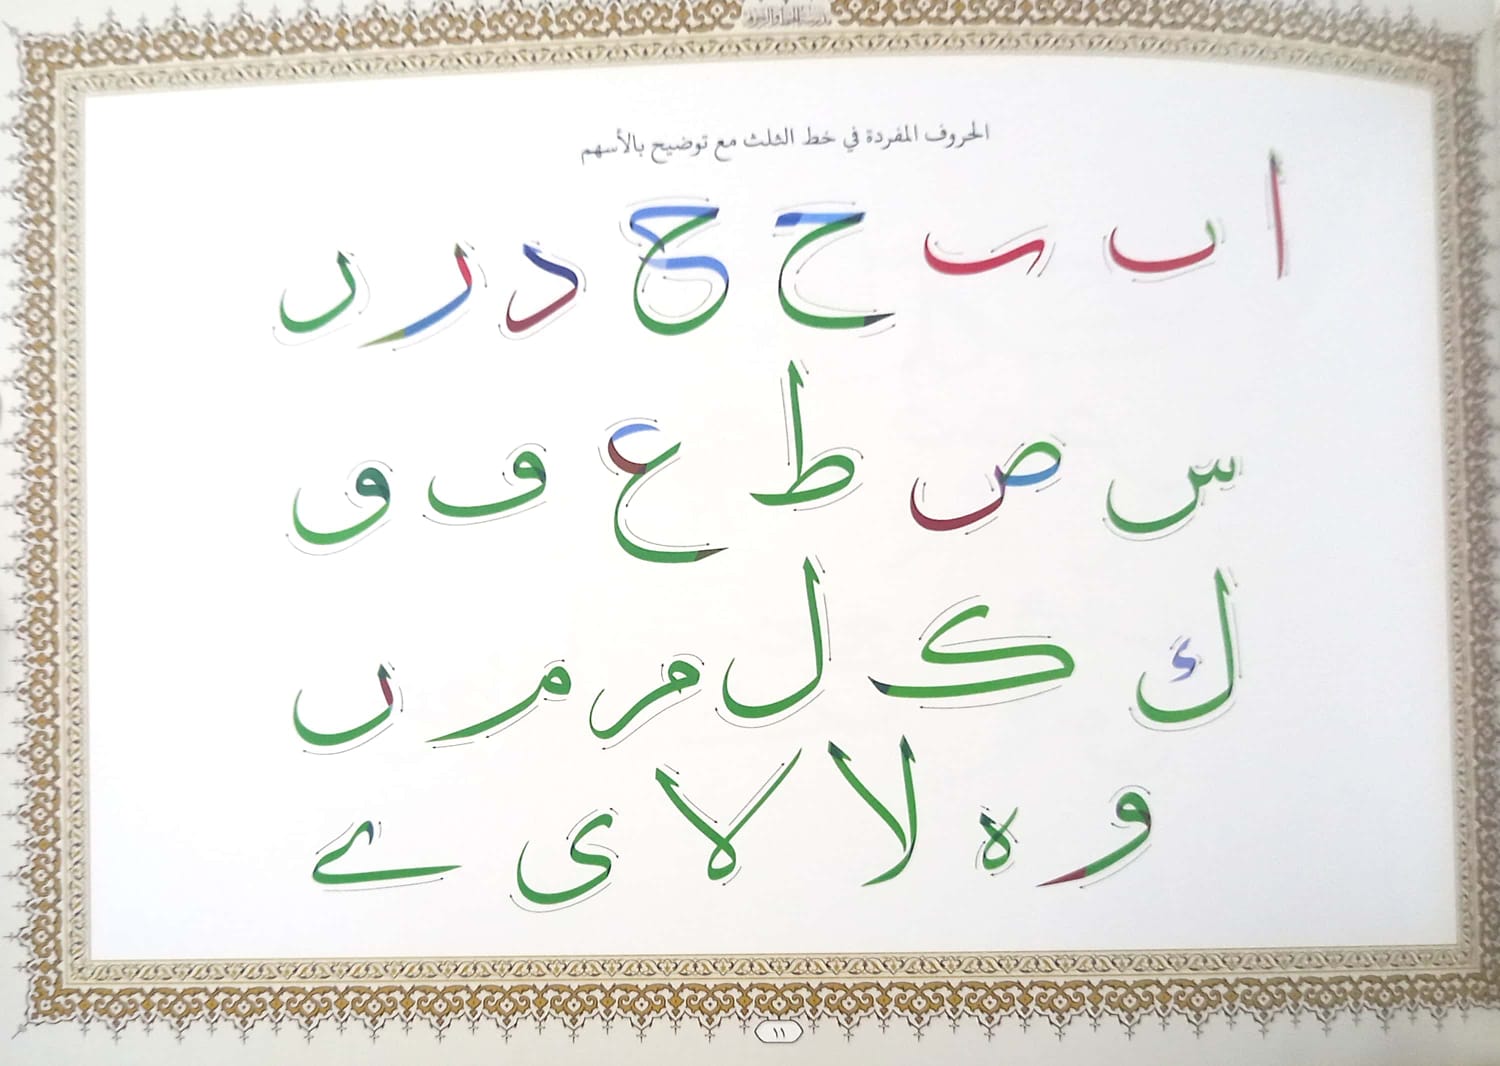 الحروف المفردة في خط الثلث مع توضيح بالأسهم
ا ٮ ٮ ح ح د ر ر
س ص ط ع ڡ ٯ
ك ک ل م م ں
و ه لا لا ى ے
١١